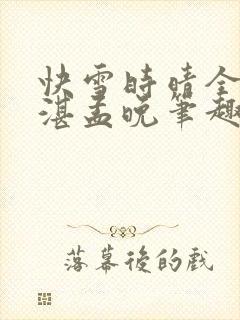 快雪時晴全
湛孟晚筆趣
落幕後的戲